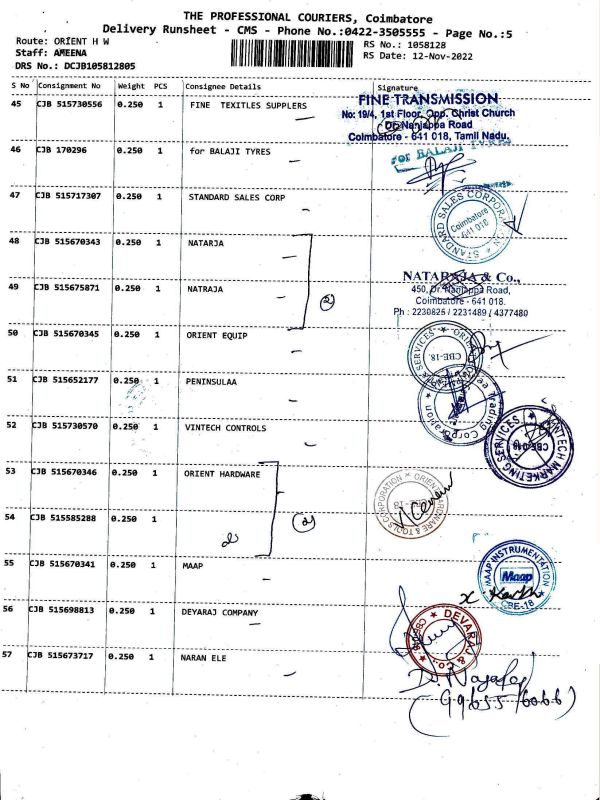 THE PROFESSIONAL COURIERS, Coimbatore
Delivery Runsheet - CMS - Phone No.:0422-3505555 - Page No.:5
Route: ORIENT H W
RS No.: 1058128
Staff: AMEENA
RS Date: 12-Nov-2022
DRS No.: DCJB105812805
S No Consignment No Weight PCS Consignee Details Signature
45 CJB 515730556 0.250 1 FINE TEXITLES SUPPLERS
FINE TRANSMISSION
No: 19/4, 1st Floor, Opp. Christ Church
Dr. Nanjappa Road
Coimbatore - 641 018, Tamil Nadu.
46 CJB 170296 0.250 1 for BALAJI TYRES
for BALAJI TYRES
47 CJB 515717307 0.250 1 STANDARD SALES CORP
STANDARD SALES CORPORATION
Coimbatore
641 018
48 CJB 515670343 0.250 1 NATARJA
49 CJB 515675871 0.250 1 NATRAJA
2
NATARAJA & Co.,
450, Dr. Nanjappa Road,
Coimbatore - 641 018.
Ph : 2230825 / 2231489 / 4377480
50 CJB 515670345 0.250 1 ORIENT EQUIP
SERVICES
CBE-18.
51 CJB 515652177 0.250 1 PENINSULAA
Trading Corporation
52 CJB 515730570 0.250 1 VINTECH CONTROLS
VINTECH MARKETING SERVICES
53 CJB 515670346 0.250 1 ORIENT HARDWARE
ORIENT HARDWARE & TOOLS CORPORATION
54 CJB 515585288 0.250 1
2
55 CJB 515670341 0.250 1 MAAP
MAAP INSTRUMENTATION
Maap
CBE-18
56 CJB 515698813 0.250 1 DEYARAJ COMPANY
DEVARAJ & Co.
57 CJB 515673717 0.250 1 NARAN ELE